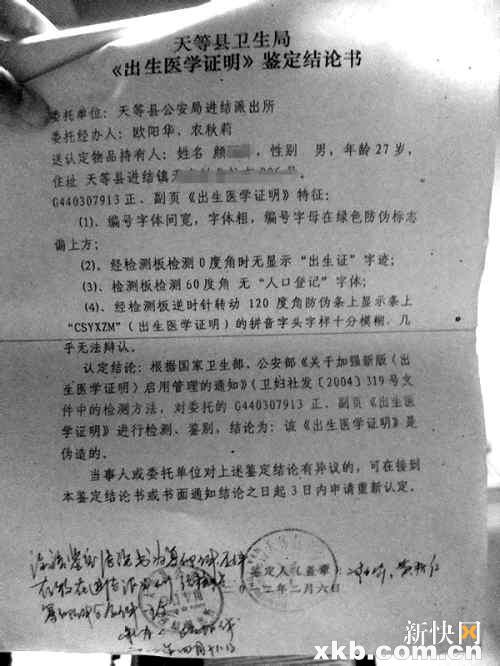 天等县卫生局
《出生医学证明》鉴定结论书
委托单位：天等县公安局进结派出所
委托经办人：欧阳华、农秋莉
送认定物品持有人：姓名 颜 ，性别 男，年龄 27 岁，
住址 天等县进结镇
G440307913 正、副页《出生医学证明》特征：
(1)、编号字体间宽，字体粗，编号字母在绿色防伪标志
偏上方；
(2)、经检测板检测 0 度角时无显示“出生证”字迹；
(3)、检测板检测 60 度角 无“人口登记”字体；
(4)、经检测板逆时针转动 120 度角防伪条上显示条上
“CSYXZM”（出生医学证明）的拼音字头字样十分模糊、几
乎无法辩认。
认定结论：根据国家卫生部、公安部《关于加强新版（出
生医学证明）启用管理的通知》（卫妇社发〔2004〕319 号文
件中的检测方法，对委托的 G440307913 正、副页《出生医
学证明》进行检测、鉴别，结论为：该《出生医学证明》是
伪造的。
当事人或委托单位对上述鉴定结论有异议的，可在接到
本鉴定结论书或书面通知结论之日起 3 日内申请重新认定。
鉴定人（盖章）：
二〇一二年二月六日
新快网
xkb.com.cn